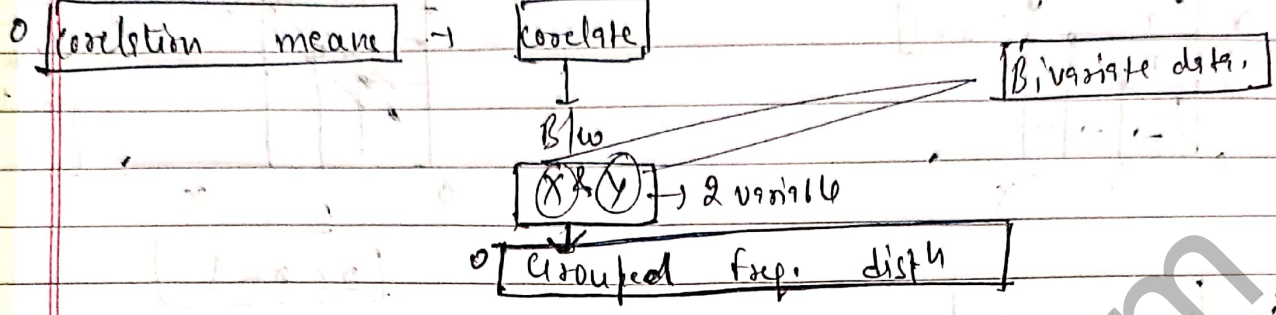 Corelstion means → Corelate
Bivariate data.
B/w
X & Y → 2 variable
Grouped freq. distn
m